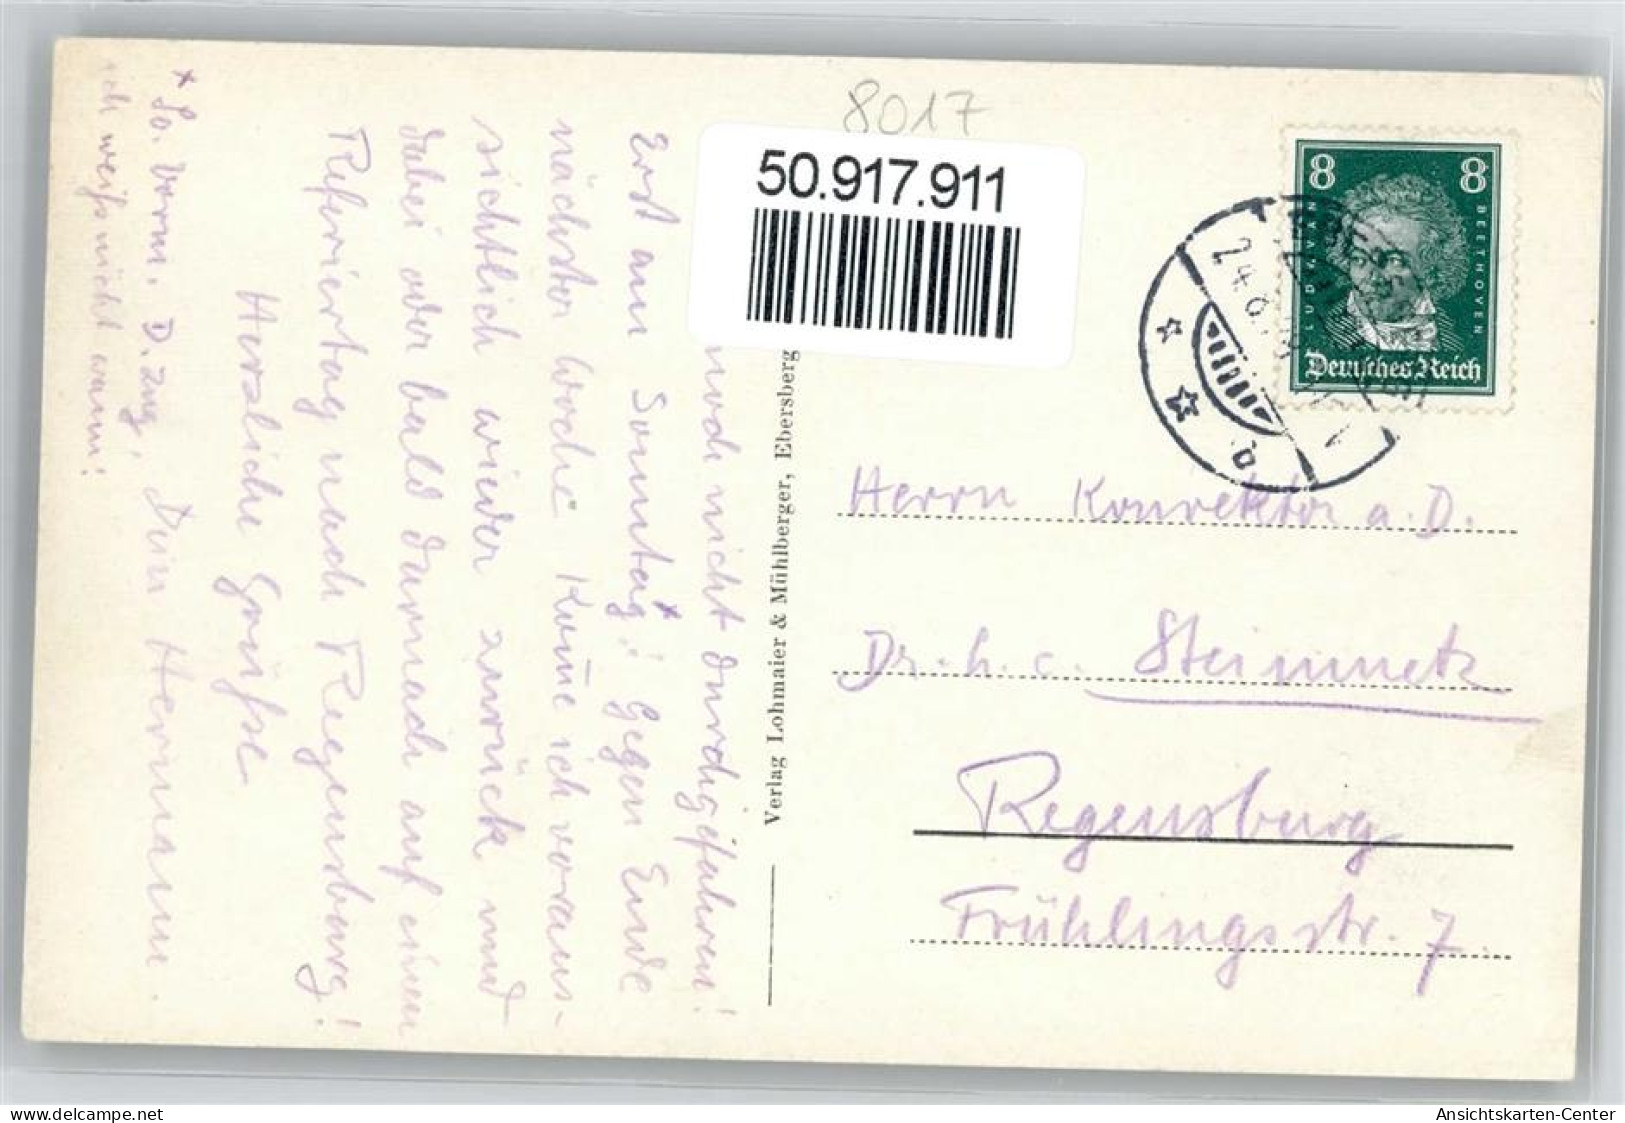 8017
50.917.911
noch nicht durchgefahren!
Erst am Sonntag*! Gegen Ende
nächster Woche komme ich voraus-
sichtlich wieder zurück und
dabei oder bald darnach auf einen
Referiertag nach Regensburg!
Herzliche Grüße
Dein Hermann.
* So. Vorm. D.zug,
ich weiß nicht wann!
Verlag Lohmaier & Mühlberger, Ebersberg
8 8
LUDW. VAN BEETHOVEN
Deutsches Reich
Herrn Konrektor a. D.
Dr. h. c. Steinmetz
Regensburg
Frühlingsstr. 7.
delcampe.net
Ansichtskarten-Center